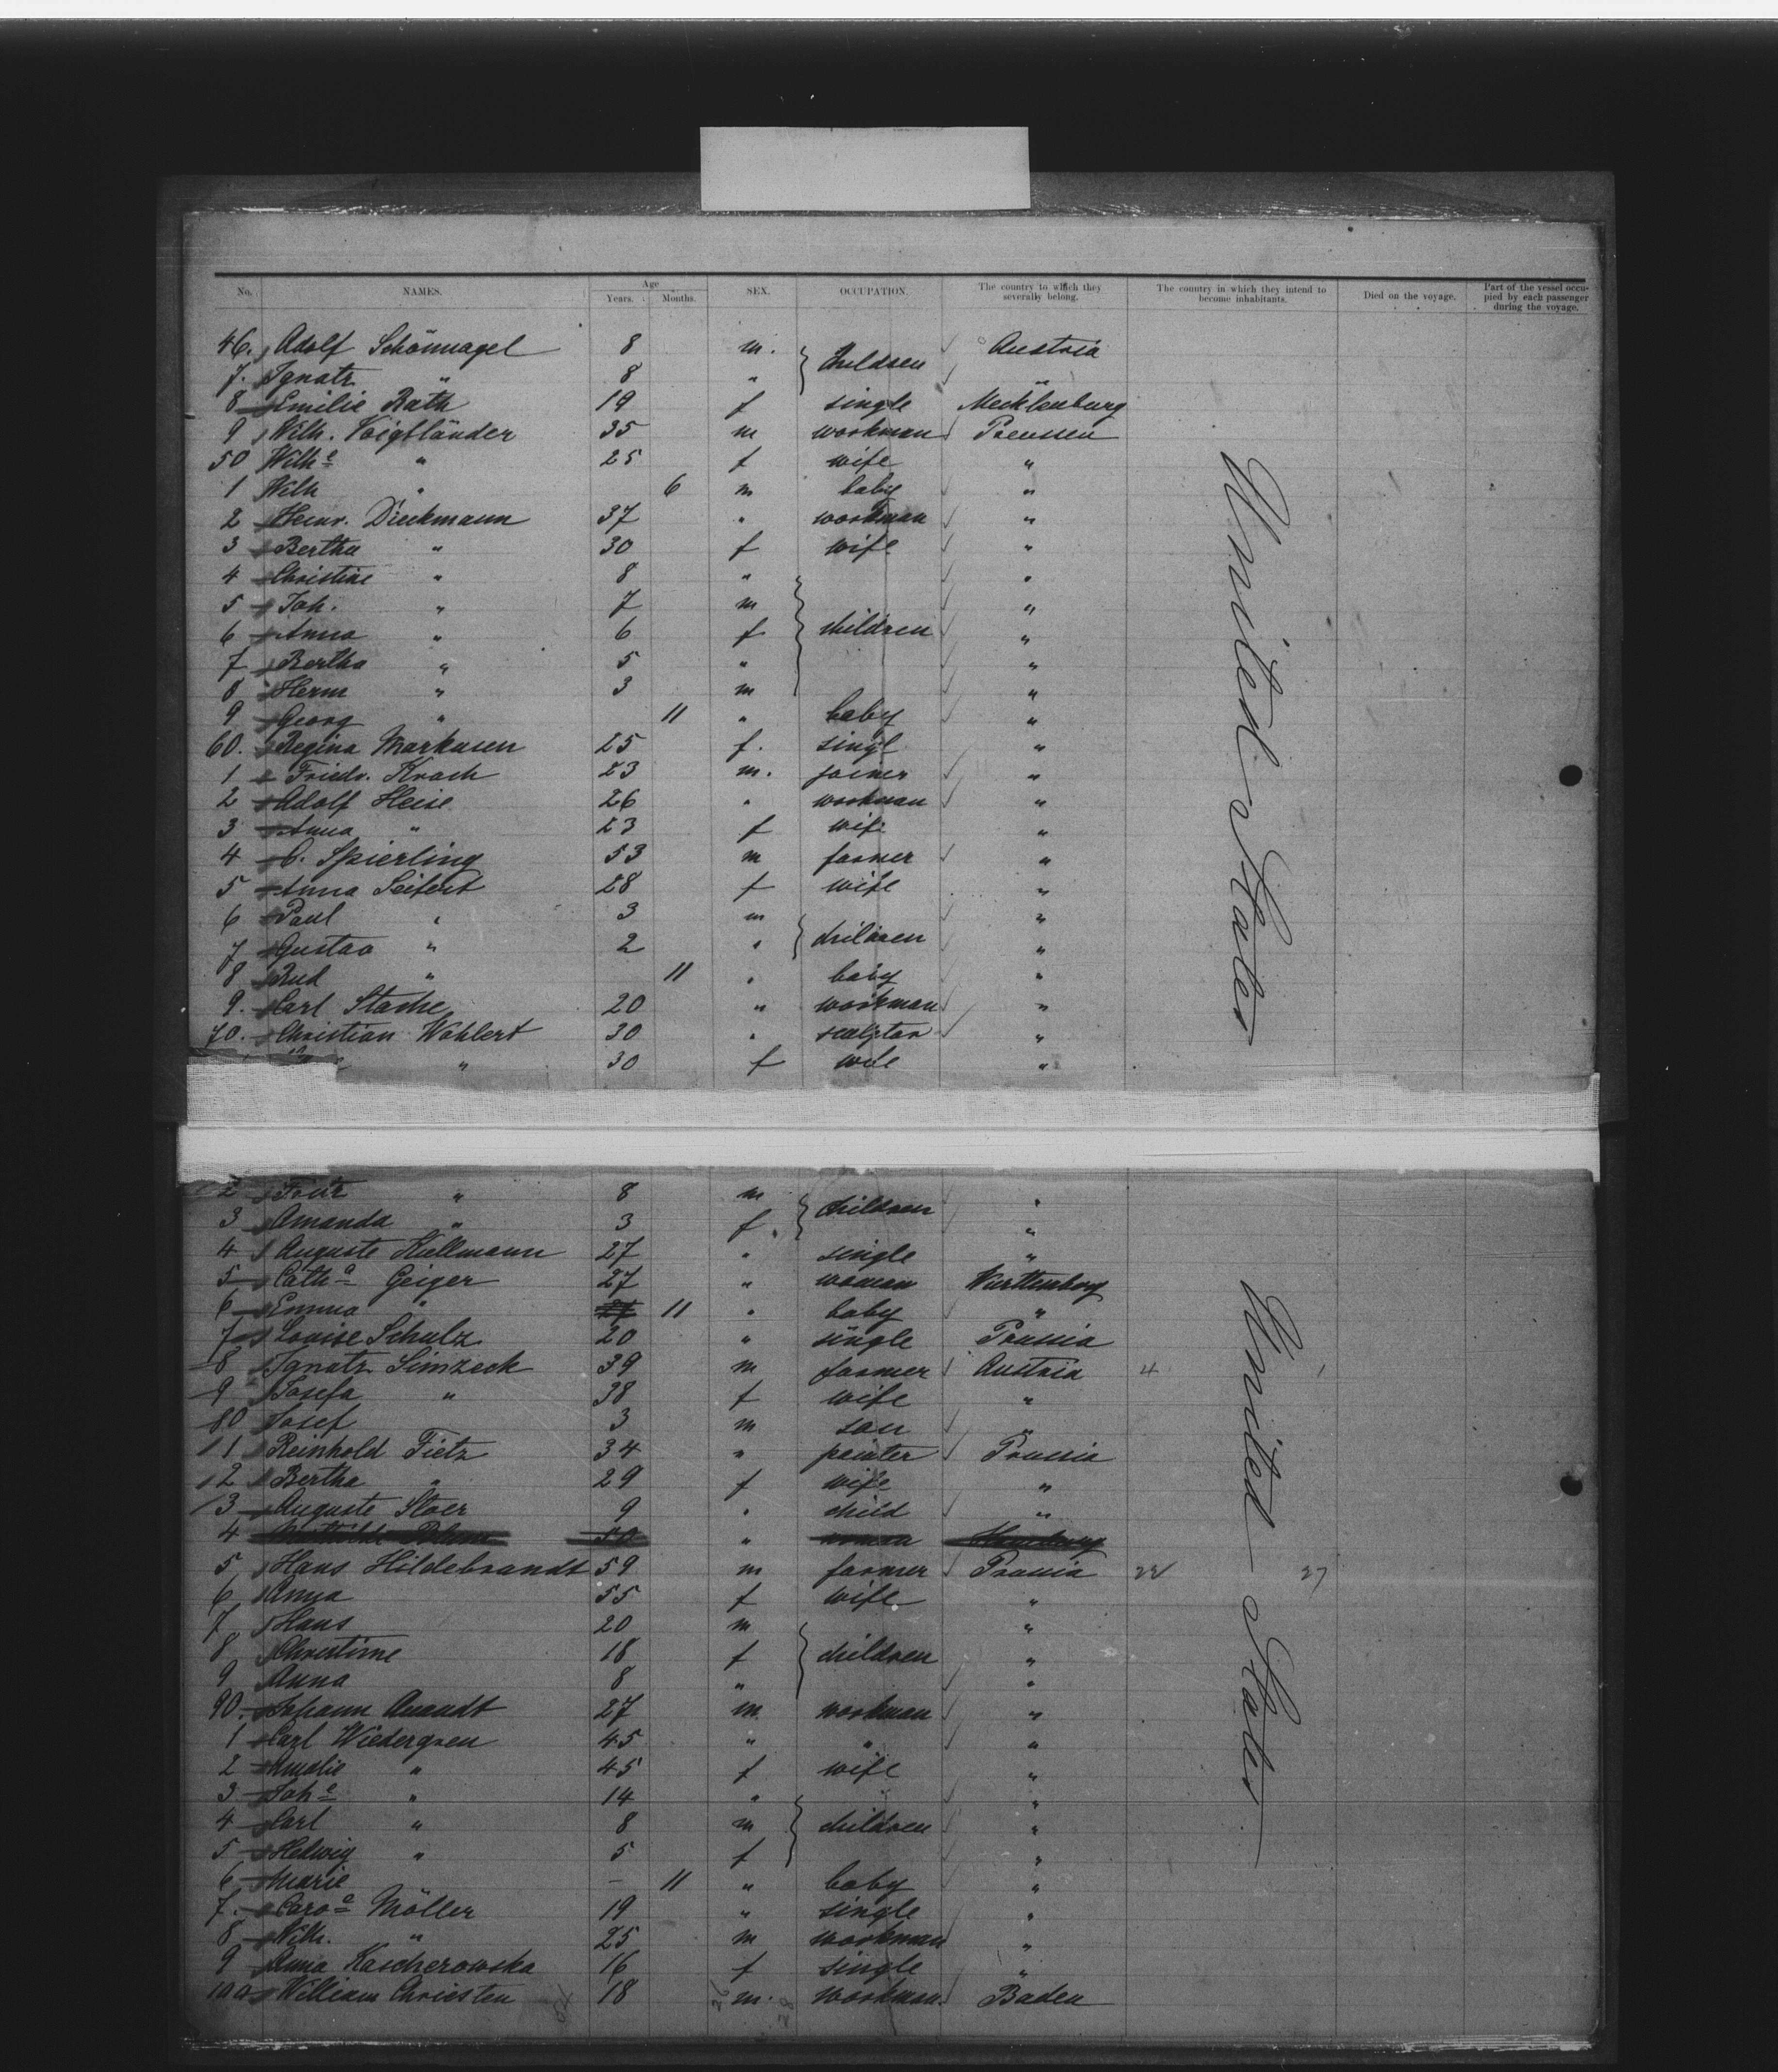 No. NAMES. Age Years. Months. SEX. OCCUPATION. The country to which they severally belong. The country in which they intend to become inhabitants. Died on the voyage. Part of the vessel occupied by each passenger during the voyage.
46. Adolf Schönnagel 8 m. children Austria
7. Ignatz " 8 " "
8 Emilie Rath 19 f single Mecklenburg
9 Wilh. Voigtländer 35 m workman Preussen
50 Wilhe " 25 f wife "
1 Wilh " 6 m baby "
2 Heinr. Dieckmann 37 " workman "
3 Bertha " 30 f wife "
4 Christine " 8 " "
5 Joh. " 7 m "
6 Anna " 6 f children "
7 Bertha " 5 " "
8 Herm " 3 m "
9 Georg " 11 " baby "
60. Regina Markusen 25 f. singl "
1 Friedr. Krach 23 m. joiner "
2 Adolf Heise 26 " workman "
3 Anna " 23 f wife "
4 C. Spierling 53 m farmer "
5 Anna Seifert 28 f wife "
6 Paul " 3 m "
7 Gustav " 2 " children "
8 Rud " 11 " baby "
9. Carl Stache 20 " workman "
70. Christian Wahlert 30 " sculptor "
" 30 f wife "
United States
2 Fritz " 8 m children "
3 Amanda " 3 f. "
4 Auguste Kullmann 27 " single "
5 Catha Geiger 27 " woman Württenberg
6 Emma " 11 " baby "
7 Louise Schulz 20 " single Prussia
8 Ignatz Simzeck 39 m farmer Austria 4
9 Josefa " 38 f wife "
80 Josef 3 m son "
1 Reinhold Tietz 34 " painter Prussia
2 Bertha " 29 f wife "
3 Auguste Stoer 9 " child "
4 "
5 Hans Hildebrandt 59 m farmer Prussia 27
6 Anna 55 f wife "
7 Hans 20 m "
8 Christine 18 f children "
9 Anna 8 " "
90. Johann Quandt 27 m workman "
1 Carl Wiedergren 45 " " "
2 Amalie " 45 f wife "
3 Johe " 14 " "
4 Carl " 8 m children "
5 Hedwig " 5 f "
6 Marie - 11 " baby "
7. Caroe Möller 19 " single "
8 Wilh. " 25 m workman "
9 Anna Kascherowska 16 f single "
100 William Christen 18 m. workman. Baden
United States